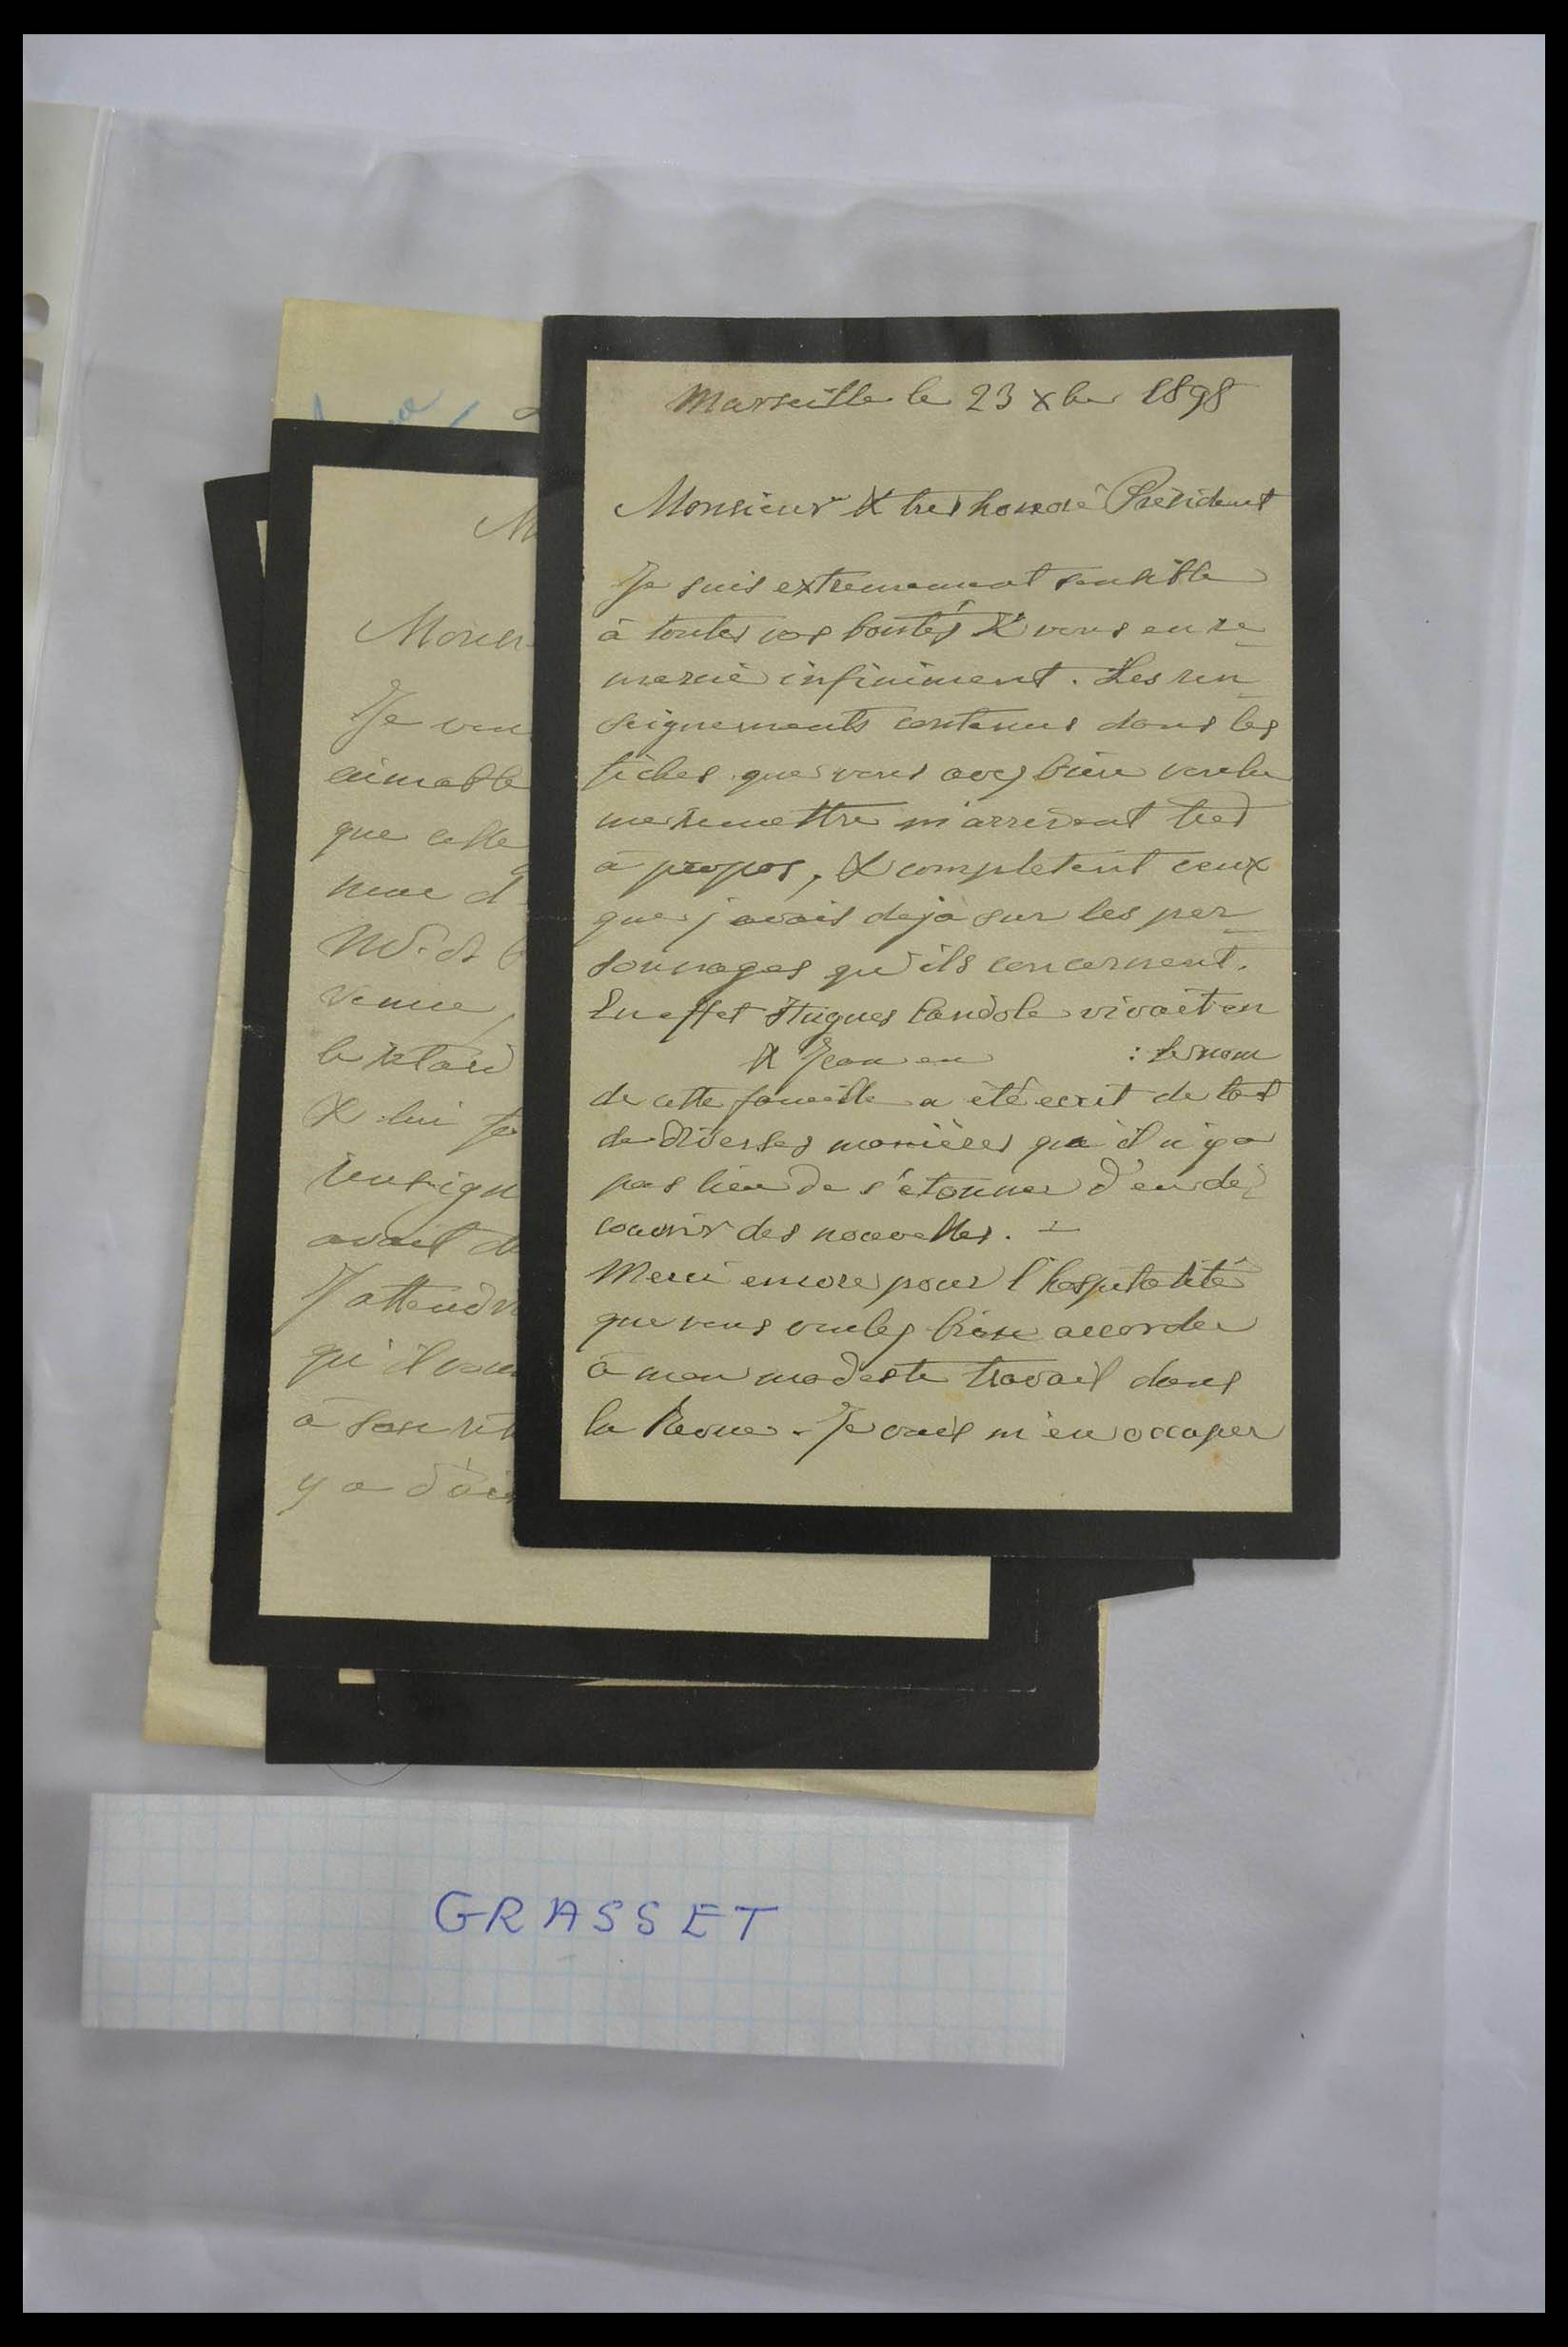 Marseille le 23 xbre 1898
Monsieur & très honoré Président
Je suis extremement sensible
à toutes vos bontés & vous en re-
mercie infiniment. Les ren-
seignements contenus dans les
fiches que vous avez bien voulu
me remettre m'arrivent très
à propos, & completent ceux
que j'avais dejà sur les per-
sonnages qu'ils concernent.
En effet Hugues Candole vivait en
& Jean en : le nom
de cette famille a été ecrit de tant
de diverses manières qu'il n'y a
pas lieu de s'étonner d'en dé-
couvrir des nouvelles. —
Merci encore pour l'hospitalité
que vous voulez bien accorder
à mon modeste travail dans
la Revue. Je vais m'en occuper
M
Monsi
Je vou
aimable
que cette
me d
Md. de
venue,
le retard
& lui
renseign
avait d
J'attendr
qu'il
à son ret
y a d'
GRASSET